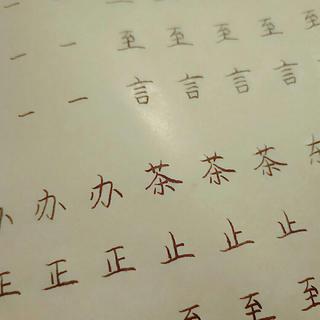 一 一 至 至 至 至 至
一 一 言 言 言 言
办 办 办 茶 茶 茶
正 正 正 止 止 止
至 至 至